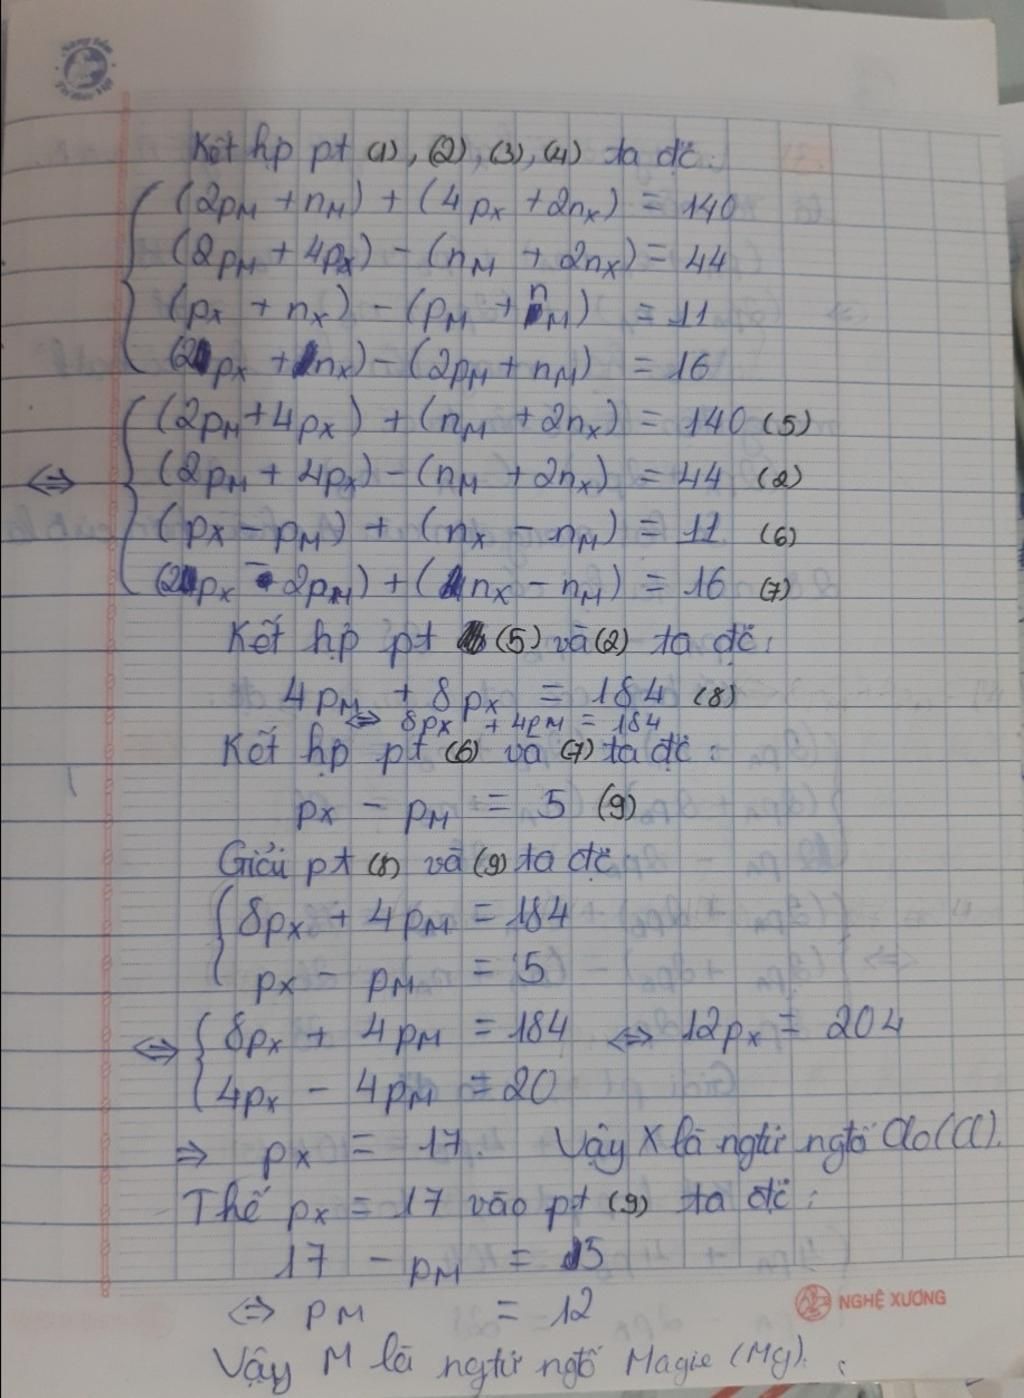 Kết hp pt (1), (2), (3), (4) ta đc:
(2pM + nM) + (4pX + 2nX) = 140
(2pM + 4pX) - (nM + 2nX) = 44
(pX + nX) - (pM + nM) = 11
(2pX + nX) - (2pM + nM) = 16
(2pM + 4pX) + (nM + 2nX) = 140 (5)
⇔ (2pM + 4pX) - (nM + 2nX) = 44 (2)
(pX - pM) + (nX - nM) = 11 (6)
(2pX - 2pM) + (nX - nM) = 16 (7)
Kết hp pt (5) và (2) ta đc:
4pM + 8pX = 184 (8)
⇔ 8pX + 4pM = 184
Kết hp pt (6) và (7) ta đc:
pX - pM = 5 (9)
Giải pt (8) và (9) ta đc:
8pX + 4pM = 184
pX - pM = 5
⇔ 8pX + 4pM = 184 ⇔ 12pX = 204
4pX - 4pM = 20
⇒ pX = 17. Vậy X là ngtử ngtố Clo (Cl).
Thế pX = 17 vào pt (9) ta đc:
17 - pM = 5
⇔ pM = 12
NGHỆ XƯƠNG
Vậy M là ngtử ngtố Magie (Mg).